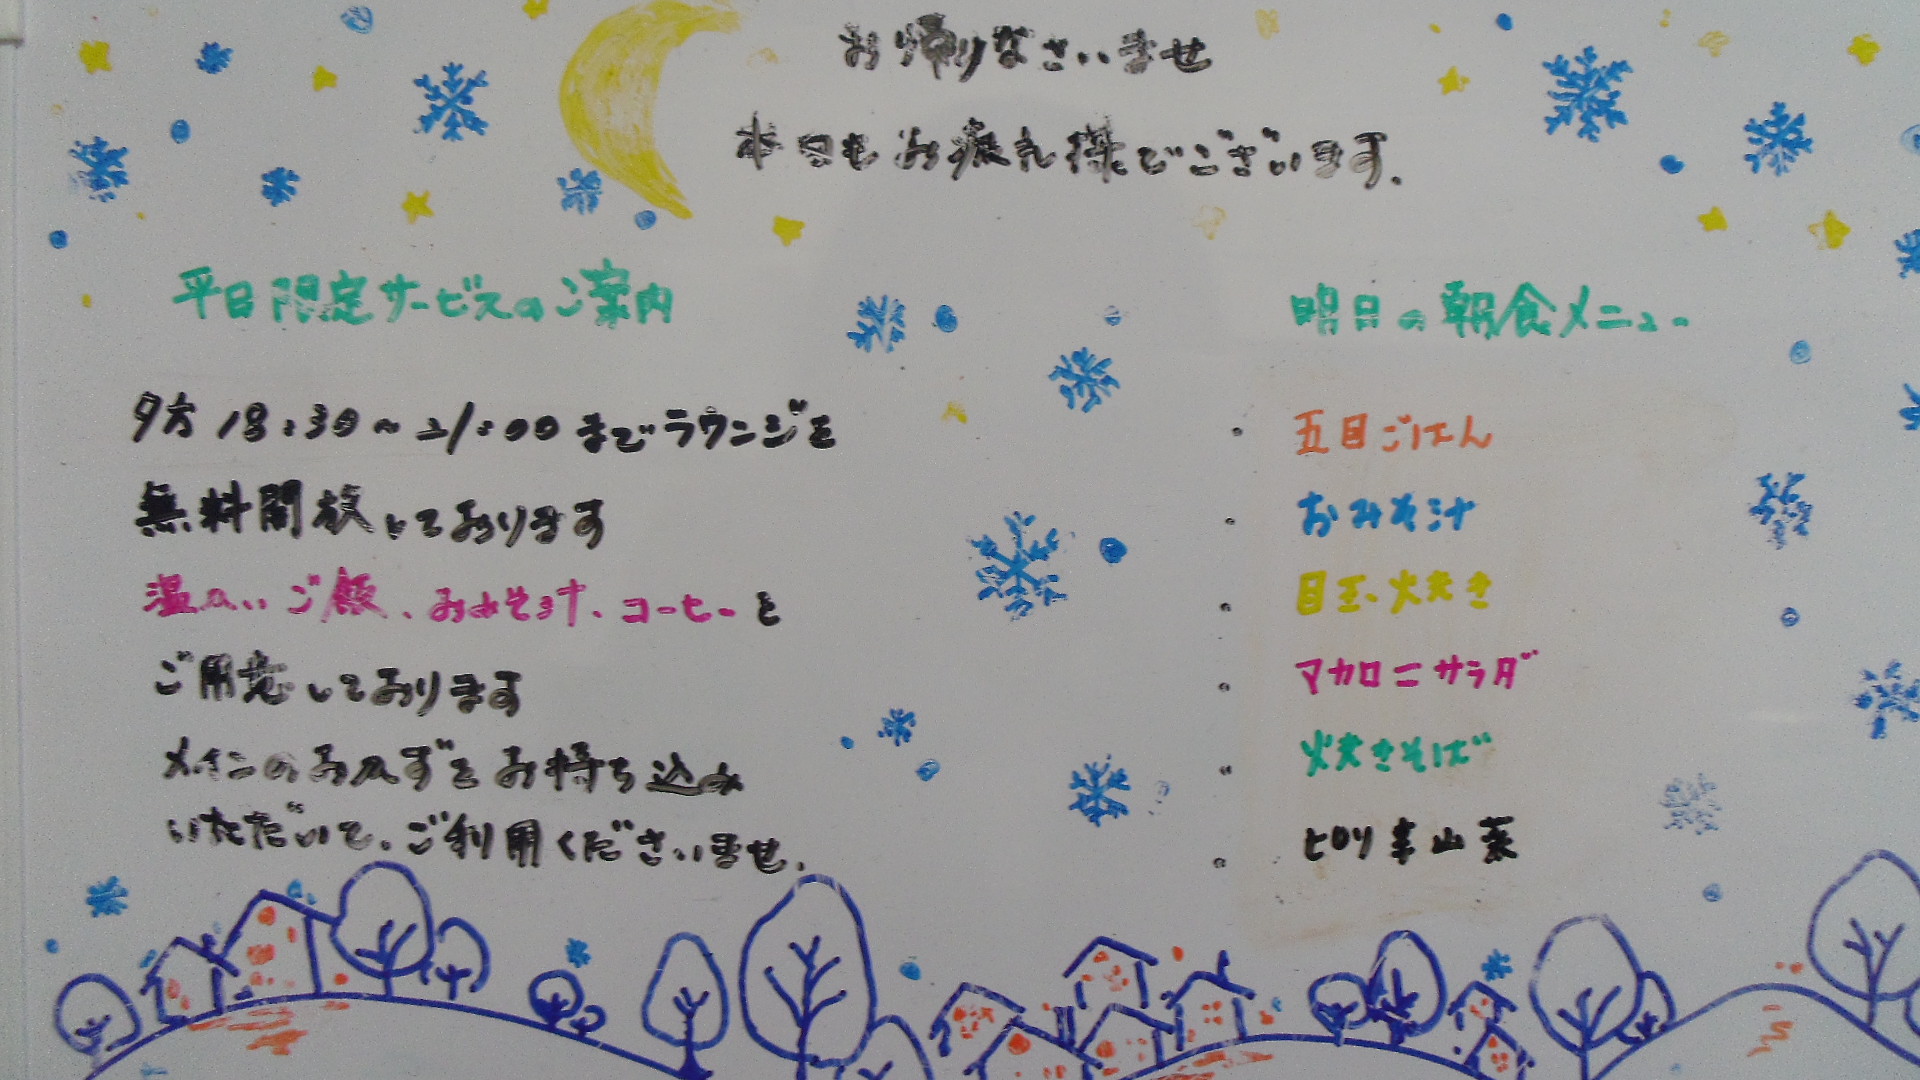 お帰りなさいませ
本日もお疲れ様でございます.
平日限定サービスのご案内
夕方 18:30～21:00 までラウンジを
無料開放しております
温かいご飯、おみそ汁、コーヒーを
ご用意しております
メインのおかずをお持ち込み
いただいて、ご利用くださいませ.
明日の朝食メニュー
・ 五目ごはん
・ おみそ汁
・ 目玉焼き
・ マカロニサラダ
・ 焼きそば
・ ピリ辛山菜